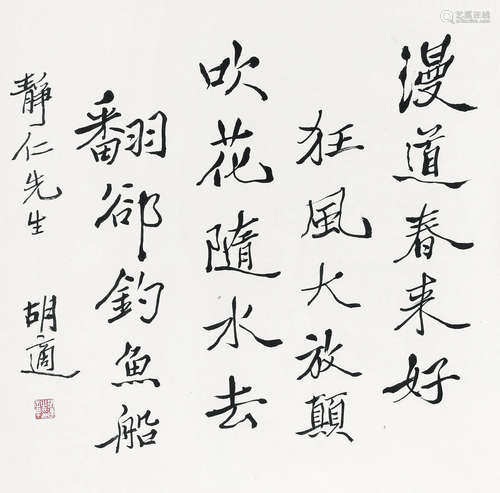 漫道春来好
狂風大放顛
吹花隨水去
翻卻釣魚船
靜仁先生
胡適
艺狐在线